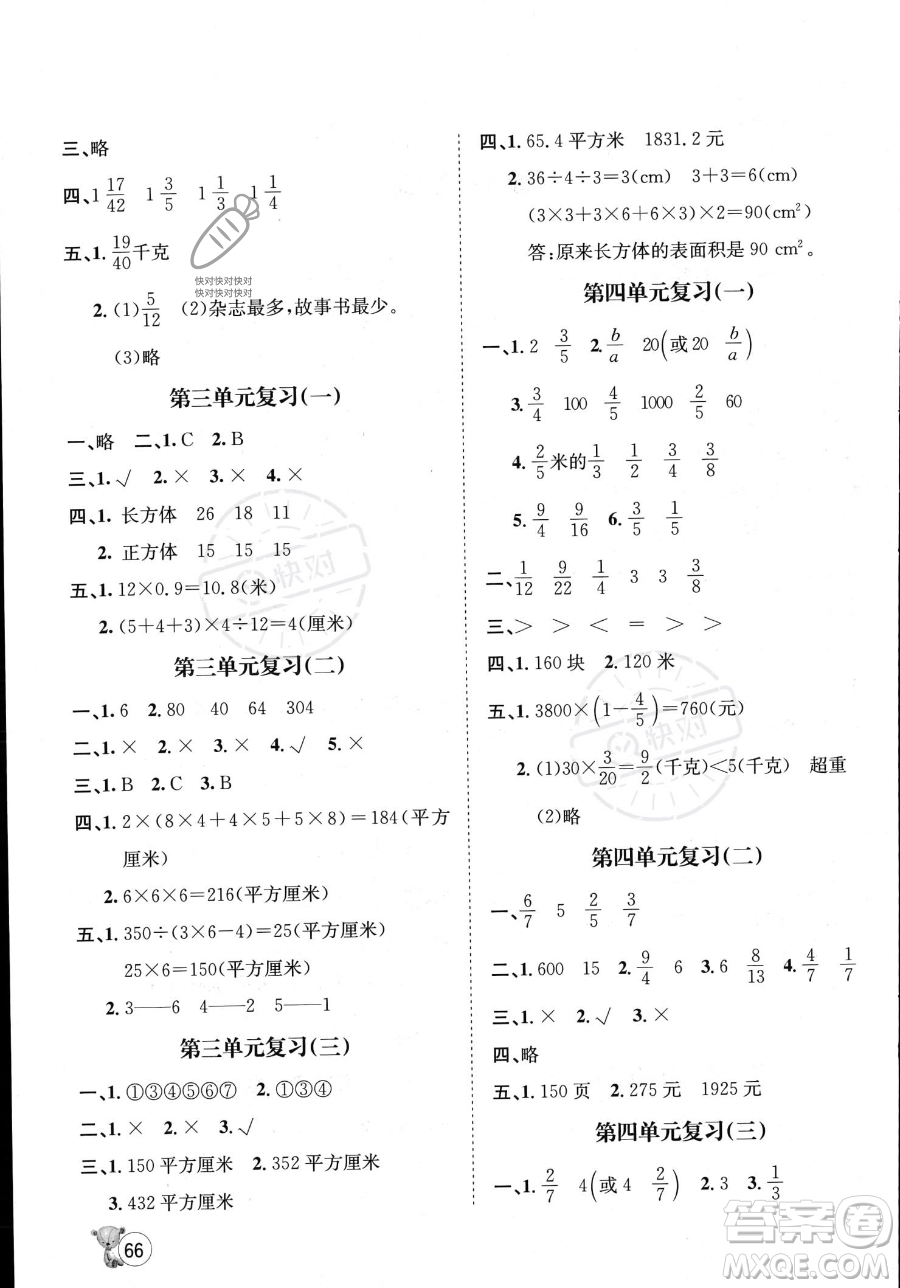 三、略
四、1 17/42 1 3/5 1 1/3 1 1/4
五、1. 19/40千克
快对快对快对
快对快对快对
2. (1) 5/12 (2)杂志最多,故事书最少。
(3)略
第三单元复习(一)
一、略 二、1. C 2. B
三、1. √ 2. × 3. × 4. ×
四、1. 长方体 26 18 11
2. 正方体 15 15 15
五、1. 12×0.9=10.8(米)
2. (5+4+3)×4÷12=4(厘米)
第三单元复习(二)
一、1. 6 2. 80 40 64 304
二、1. × 2. × 3. × 4. √ 5. ×
三、1. B 2. C 3. B
四、1. 2×(8×4+4×5+5×8)=184(平方
厘米)
2. 6×6×6=216(平方厘米)
五、1. 350÷(3×6-4)=25(平方厘米)
25×6=150(平方厘米)
2. 3——6 4——2 5——1
第三单元复习(三)
一、1. ①③④⑤⑥⑦ 2. ①③④
二、1. × 2. × 3. × 4. √
三、1. 150平方厘米 2. 352平方厘米
3. 432平方厘米
66
四、1. 65.4平方米 1831.2元
2. 36÷4÷3=3(cm) 3+3=6(cm)
(3×3+3×6+6×3)×2=90(cm²)
答:原来长方体的表面积是90 cm²。
第四单元复习(一)
一、1. 2 3/5 2. b/a 20(或20 b/a)
3. 3/4 100 4/5 1000 2/5 60
4. 2/5米的1/3 1/2 3/4 3/8
5. 9/4 9/16 6. 3/5 1/5
二、1/12 22/9 9/4 3 3 3/8
三、> > < = > >
四、1. 160块 2. 120米
五、1. 3800×(1-4/5)=760(元)
2. (1)30×3/20=9/2(千克)<5(千克) 超重
(2)略
快对
快对
第四单元复习(二)
一、6/7 5 2/5 3/7
二、1. 600 15 2. 9/4 6 3. 6 8/13 4. 4/7 1/7
三、1. × 2. √ 3. ×
四、略
五、1. 150页 2. 275元 1925元
第四单元复习(三)
一、1. 2/7 4(或4 2/7) 2. 3 3. 1/3
答案卷
MXQE.COM